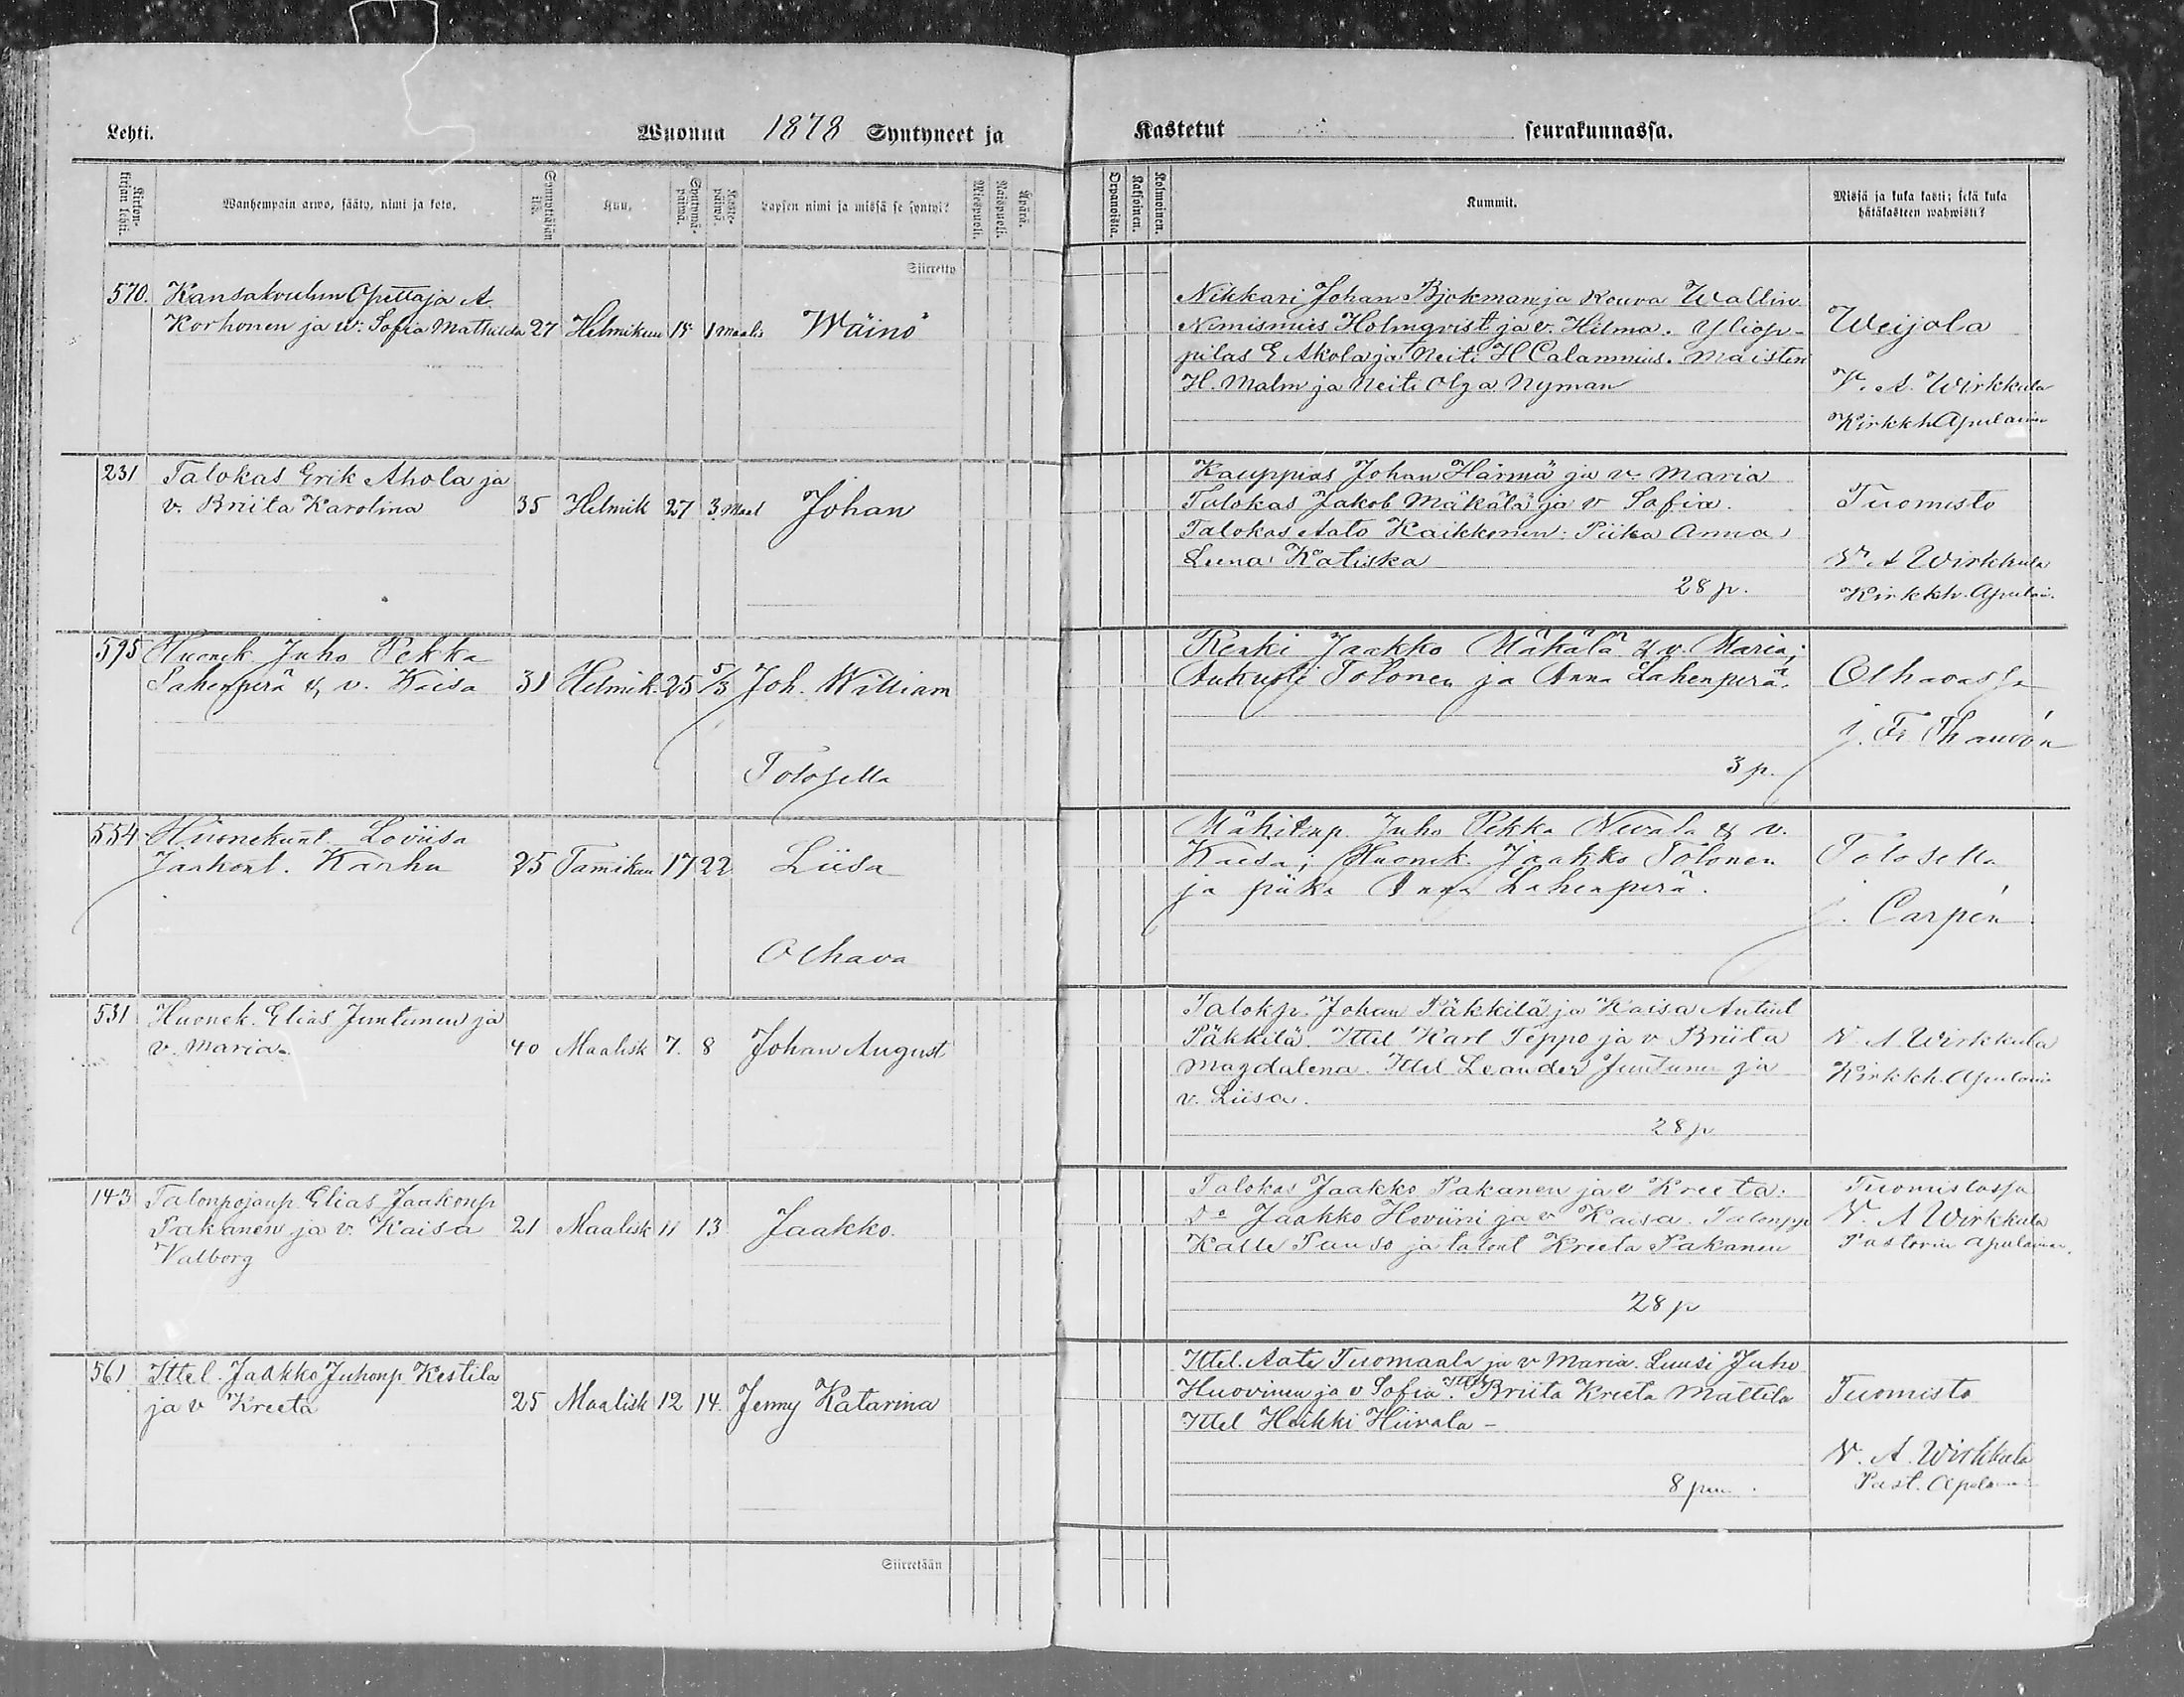 Lehti.
Wuonna 1878 Syntyneet ja
Kastetut seurakunnassa.
Wanhempain arwo, sääty, nimi ja koto.
Kuu.
Syntymä-päiwä.
Kaste-päiwä.
Lapsen nimi ja missä se syntyi?
Miespuoli.
Naispuoli.
Äpärä.
Kaksoinen.
Kolmoinen.
Kummit.
Missä ja kuka kasti; sekä kuka
hätäkasteen wahwisti?
Siirretty
570. Kansakoulun Opettaja A
Korhonen ja w: Sofia Mathilda 27 Helmikuu 15 1 Maalis Wäinö
Nikkari Johan Bjökman ja Rouva Wallin
Nimismies Holmqvist ja v. Hilma. Yliop-
pilas E Ahola ja Neiti H Calamnius. Maisteri
H. Malm ja Neiti Olga Nyman
Weijola
V. A. Wirkkula
Kirkkh Apulainen
231 Talokas Erik Ahola ja
v. Briita Karolina 35 Helmik 27 3 Maal Johan
Kauppias Johan Härmä ja v. Maria
Talokas Jakob Mäkälä ja v Sofia.
Talokas Aato Kaikkonen: Piika Anna
Leena Katiska
28 p.
Tuomisto
V. A Wirkkula
Kirkkh. Apulai.
595 Huonek Juho Pekka
Lahenperä & v. Kaisa 31 Helmik. 25 5/3 Joh. William
Tolosella
Renki Jaakko Mäkälä & v. Maria;
Aukusti Tolonen ja Anna Lahenperä.
3 p.
Olhavassa
j. Fr. Thauvón
554 Huonekunt Loviisa
Jaakont. Karhu 25 Tamikuu 17 22 Liisa
Olhava
Mäkitup. Juho Pekka Nevala & v.
Kaisa; Huonek. Jaakko Tolonen
ja piika Anna Lahenperä.
Tolosella
j. Carpén
531 Huonek. Elias Juntunen ja
v. Maria. 40 Maalisk 7. 8 Johan August
Talokp. Johan Päkkilä ja Kaisa Antint
Päkkilä. Ittel Karl Teppo ja v Briita
Magdalena. Ittel Leander Juntunen ja
v. Liisa.
28 p
V. A. Wirkkula
Kirkkh. Apulain
143 Talonpojanp. Elias Jaakonp
Pakanen ja v. Kaisa 21 Maalisk 11 13 Jaakko.
Valborg
Talokas Jaakko Pakanen ja v Kreeta.
Do Jaakko Hoviini ja v Kaisa. Talonpp
Kalle Pauso ja talont Kreeta Pakanen
28 p
Tuomistossa
V. A Wirkkula
Pastorin apulainen.
561 Ittel. Jaakko Juhonp. Kestila
ja v Kreeta 25 Maalisk 12 14. Jenny Katarina
Ittel. Aate Tuomaala ja v Maria. Luusi Juho
Huovinen ja v Sofia. Ittell Briita Kreeta Mattila
Ittel Heikki Hiivala -
8 pen.
Tuomisto
V. A. Wirkkula
Past. Apula
Siirretään